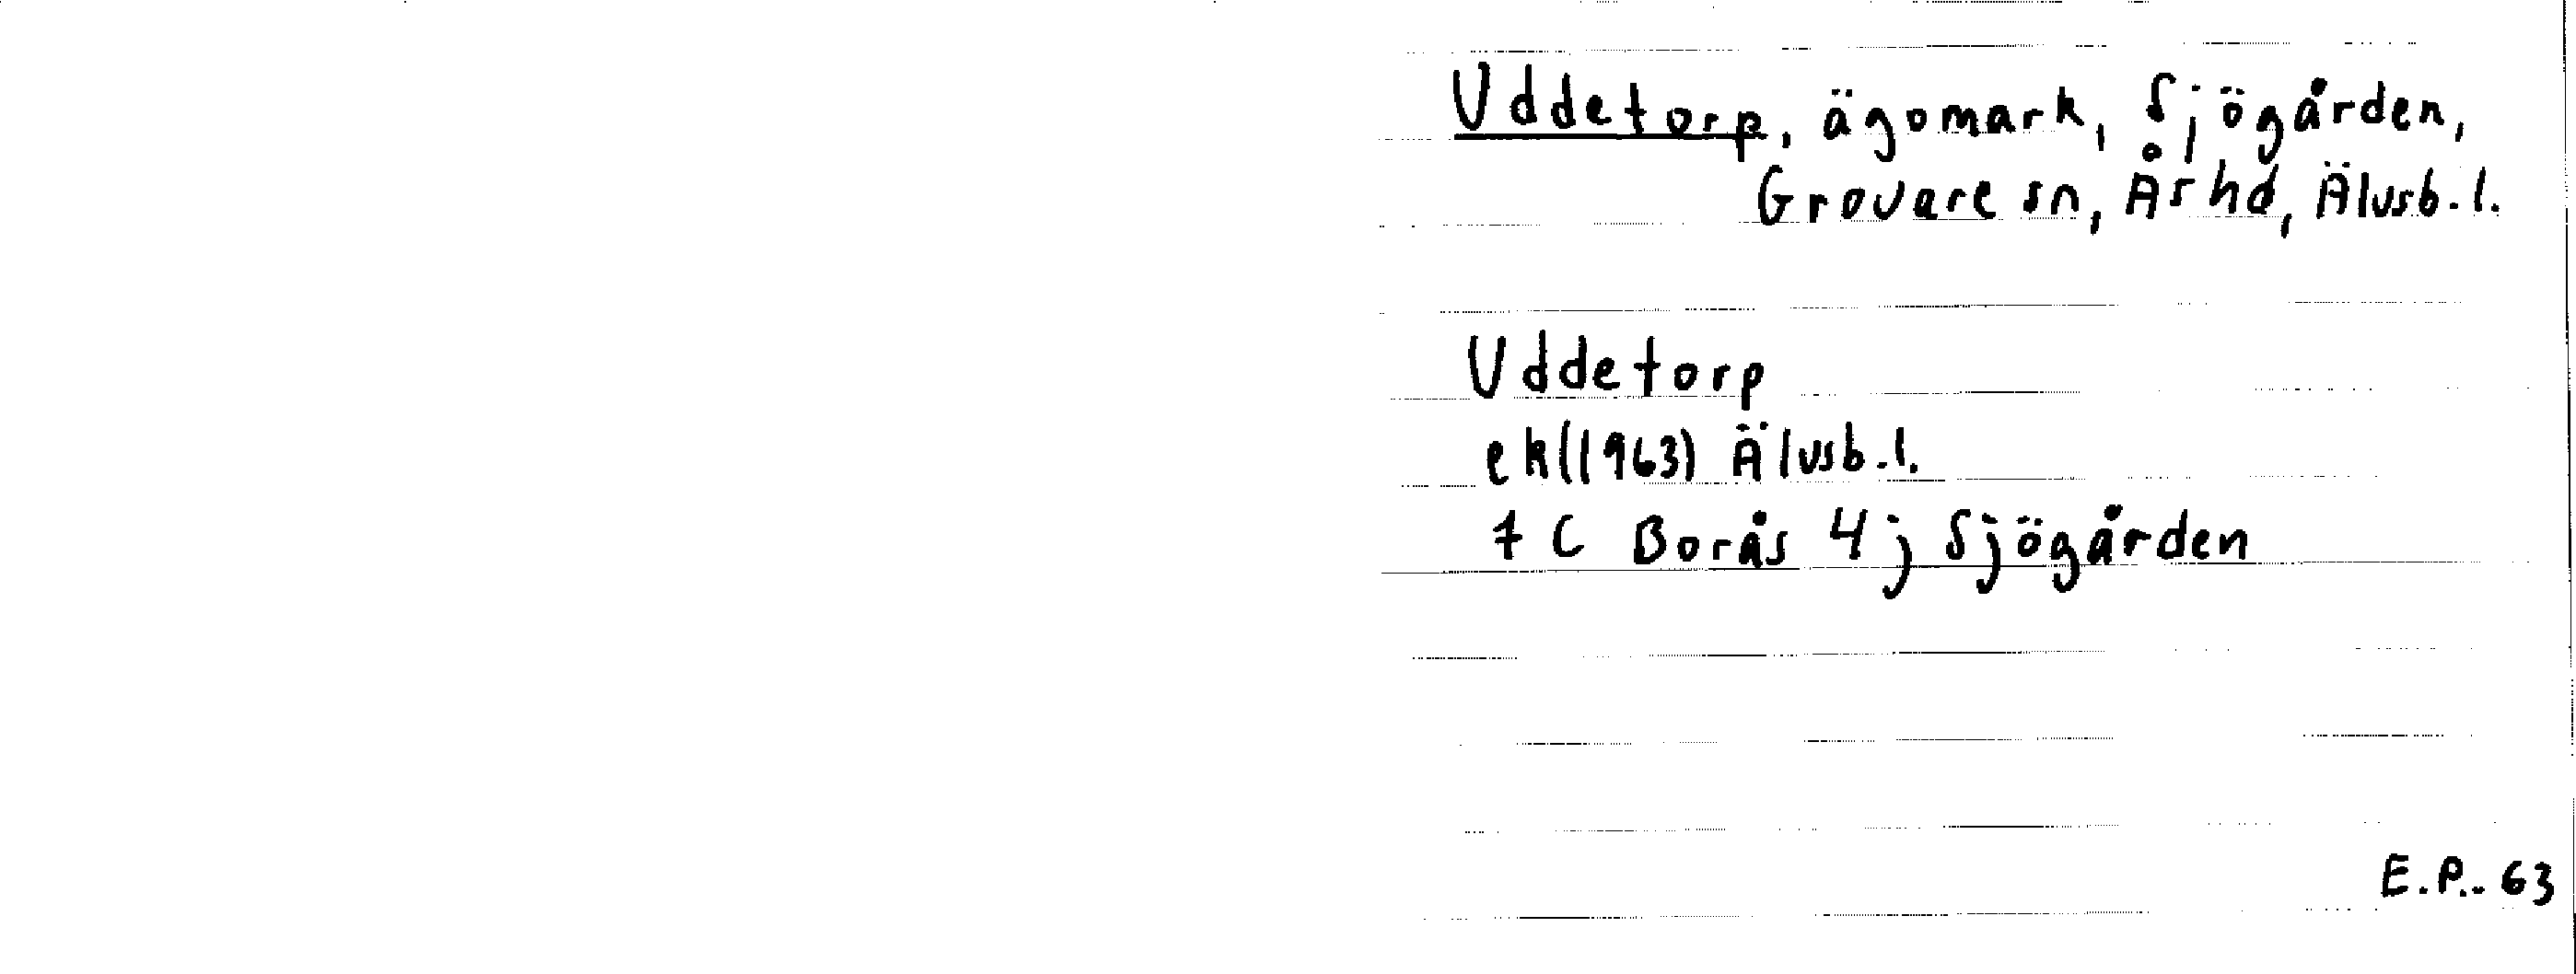 Uddetorp, ägomark, Sjögården,
Grovare sn, Ås hd, Älvsb.l.
Uddetorp
ek(1963) Älvsb.l.
7 C Borås 4 j Sjögården
E.P..63